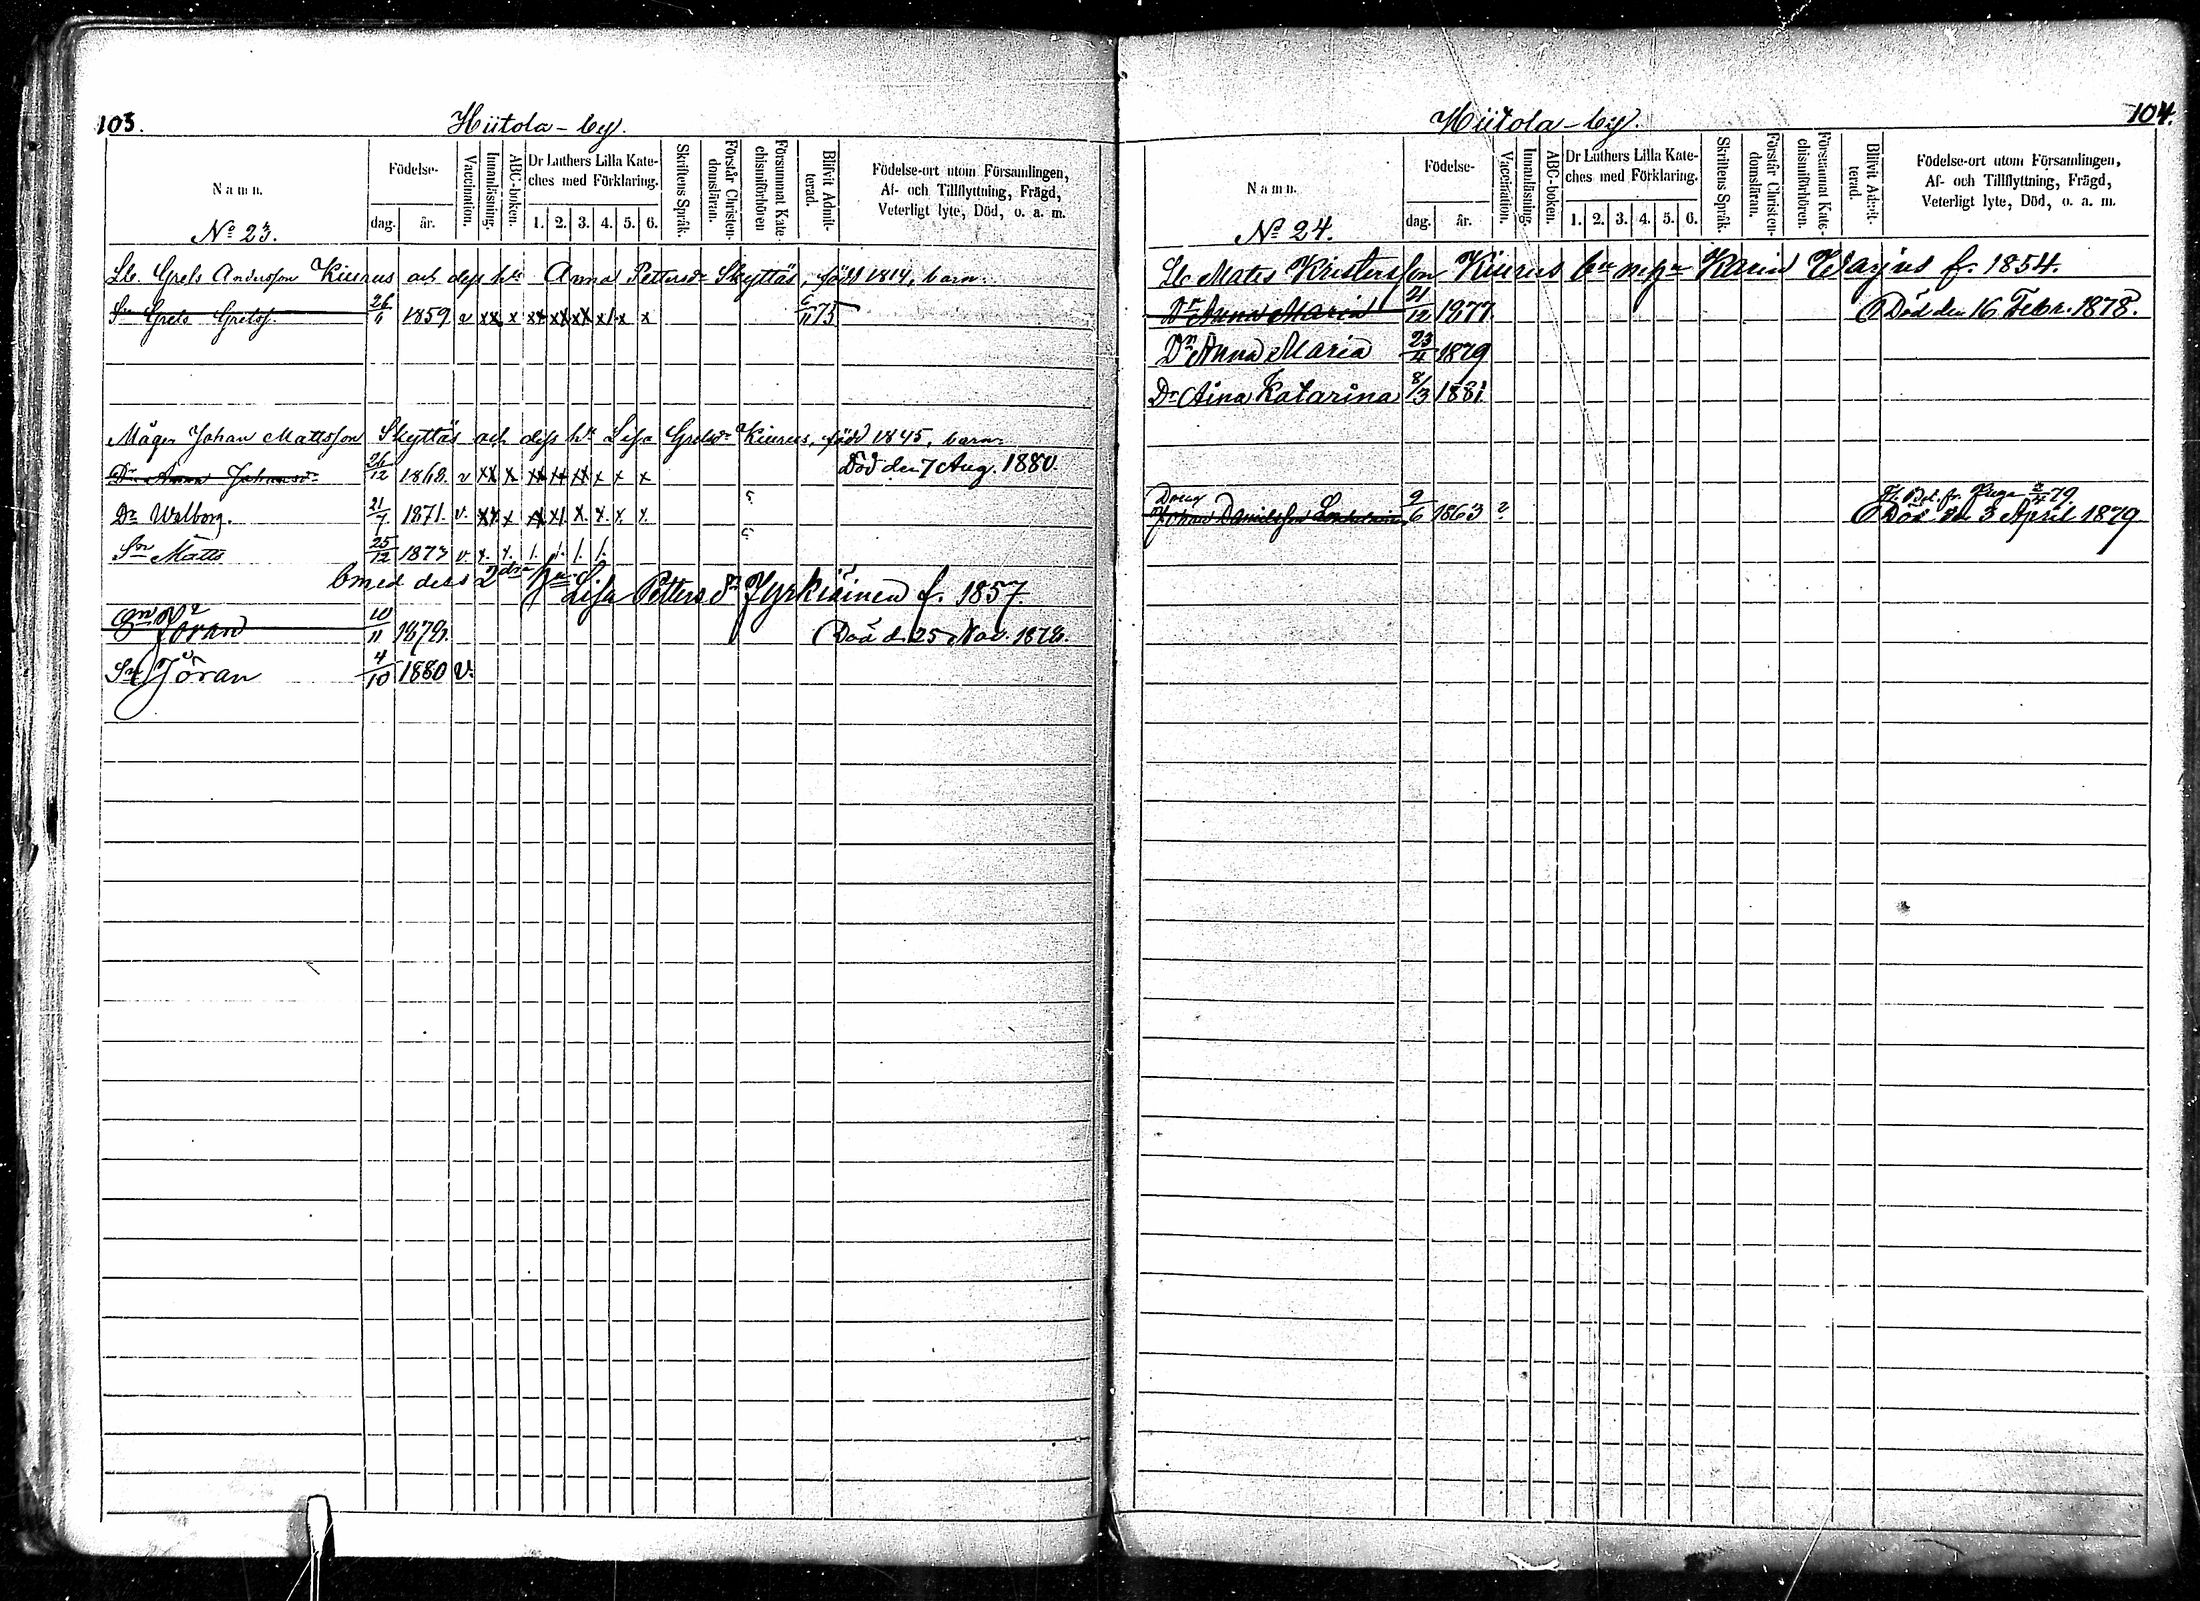 103.
Hiitola-by.
Namn.
Födelse-
dag.
år.
Vaccination.
Innanläsning.
ABC-boken.
Dr Luthers Lilla Kate-
ches med Förklaring.
1. 2. 3. 4. 5. 6.
Skriftens Språk.
Förstår Christen-
domsläran.
Försummat Kate-
chismiförhören
Blifvit Admit-
terad.
Födelse-ort utom Församlingen,
Af- och Tillflyttning, Frägd,
Veterligt lyte, Död, o. a. m.
No 23.
Lb. Grels Andersson Kiurus och dess hu Anna Pettersdr Skyttäs, född 1814, barn:
Sn Grels Gretss. 26/11 1859 v xx x xx xx xx x1 x x 6/11 75
Måger Johan Mattsson Skyttäs och dess hu Lisa Grelsdr Kiurus, född 1845, barn:
Dr Anna Johansdr 26/12 1868. v xx x xx xx xx x x x Död den 7 Aug. 1880.
Dr Walborg. 21/7 1871. v. xx x xx x1. x. x. x x.
Sn Matts 25/12 1873 v. x. x. 1. 1. 1. 1.
med dess 2dra hu Lisa Pettersdr Jyrkiäinen f. 1857.
Sn Jöran 10/11 1878. Död d. 25 Nov. 1878.
Sn Jöran 4/10 1880 v.
104.
Hiitola-by.
Namn.
Födelse-
dag.
år.
Vaccination.
Innanläsning.
ABC-boken.
Dr Luthers Lilla Kate-
ches med Förklaring.
1. 2. 3. 4. 5. 6.
Skriftens Språk.
Förstår Christen-
domsläran.
Försummat Kate-
chismiförhören.
Blifvit Admit-
terad.
Födelse-ort utom Församlingen,
Af- och Tillflyttning, Frägd,
Veterligt lyte, Död, o. a. m.
No 24.
Lb Mats Kristersson Kiurus Karin f. 1854.
Dr Anna Maria 21/12 1877 Död den 16 Febr. 1878.
Dr Anna Maria 23/4 1879
Dr Aina Katarina 8/3 1881
Dreng
Johan Danielsson 9/6 1863 ?
79.
Död den 3 April 1879